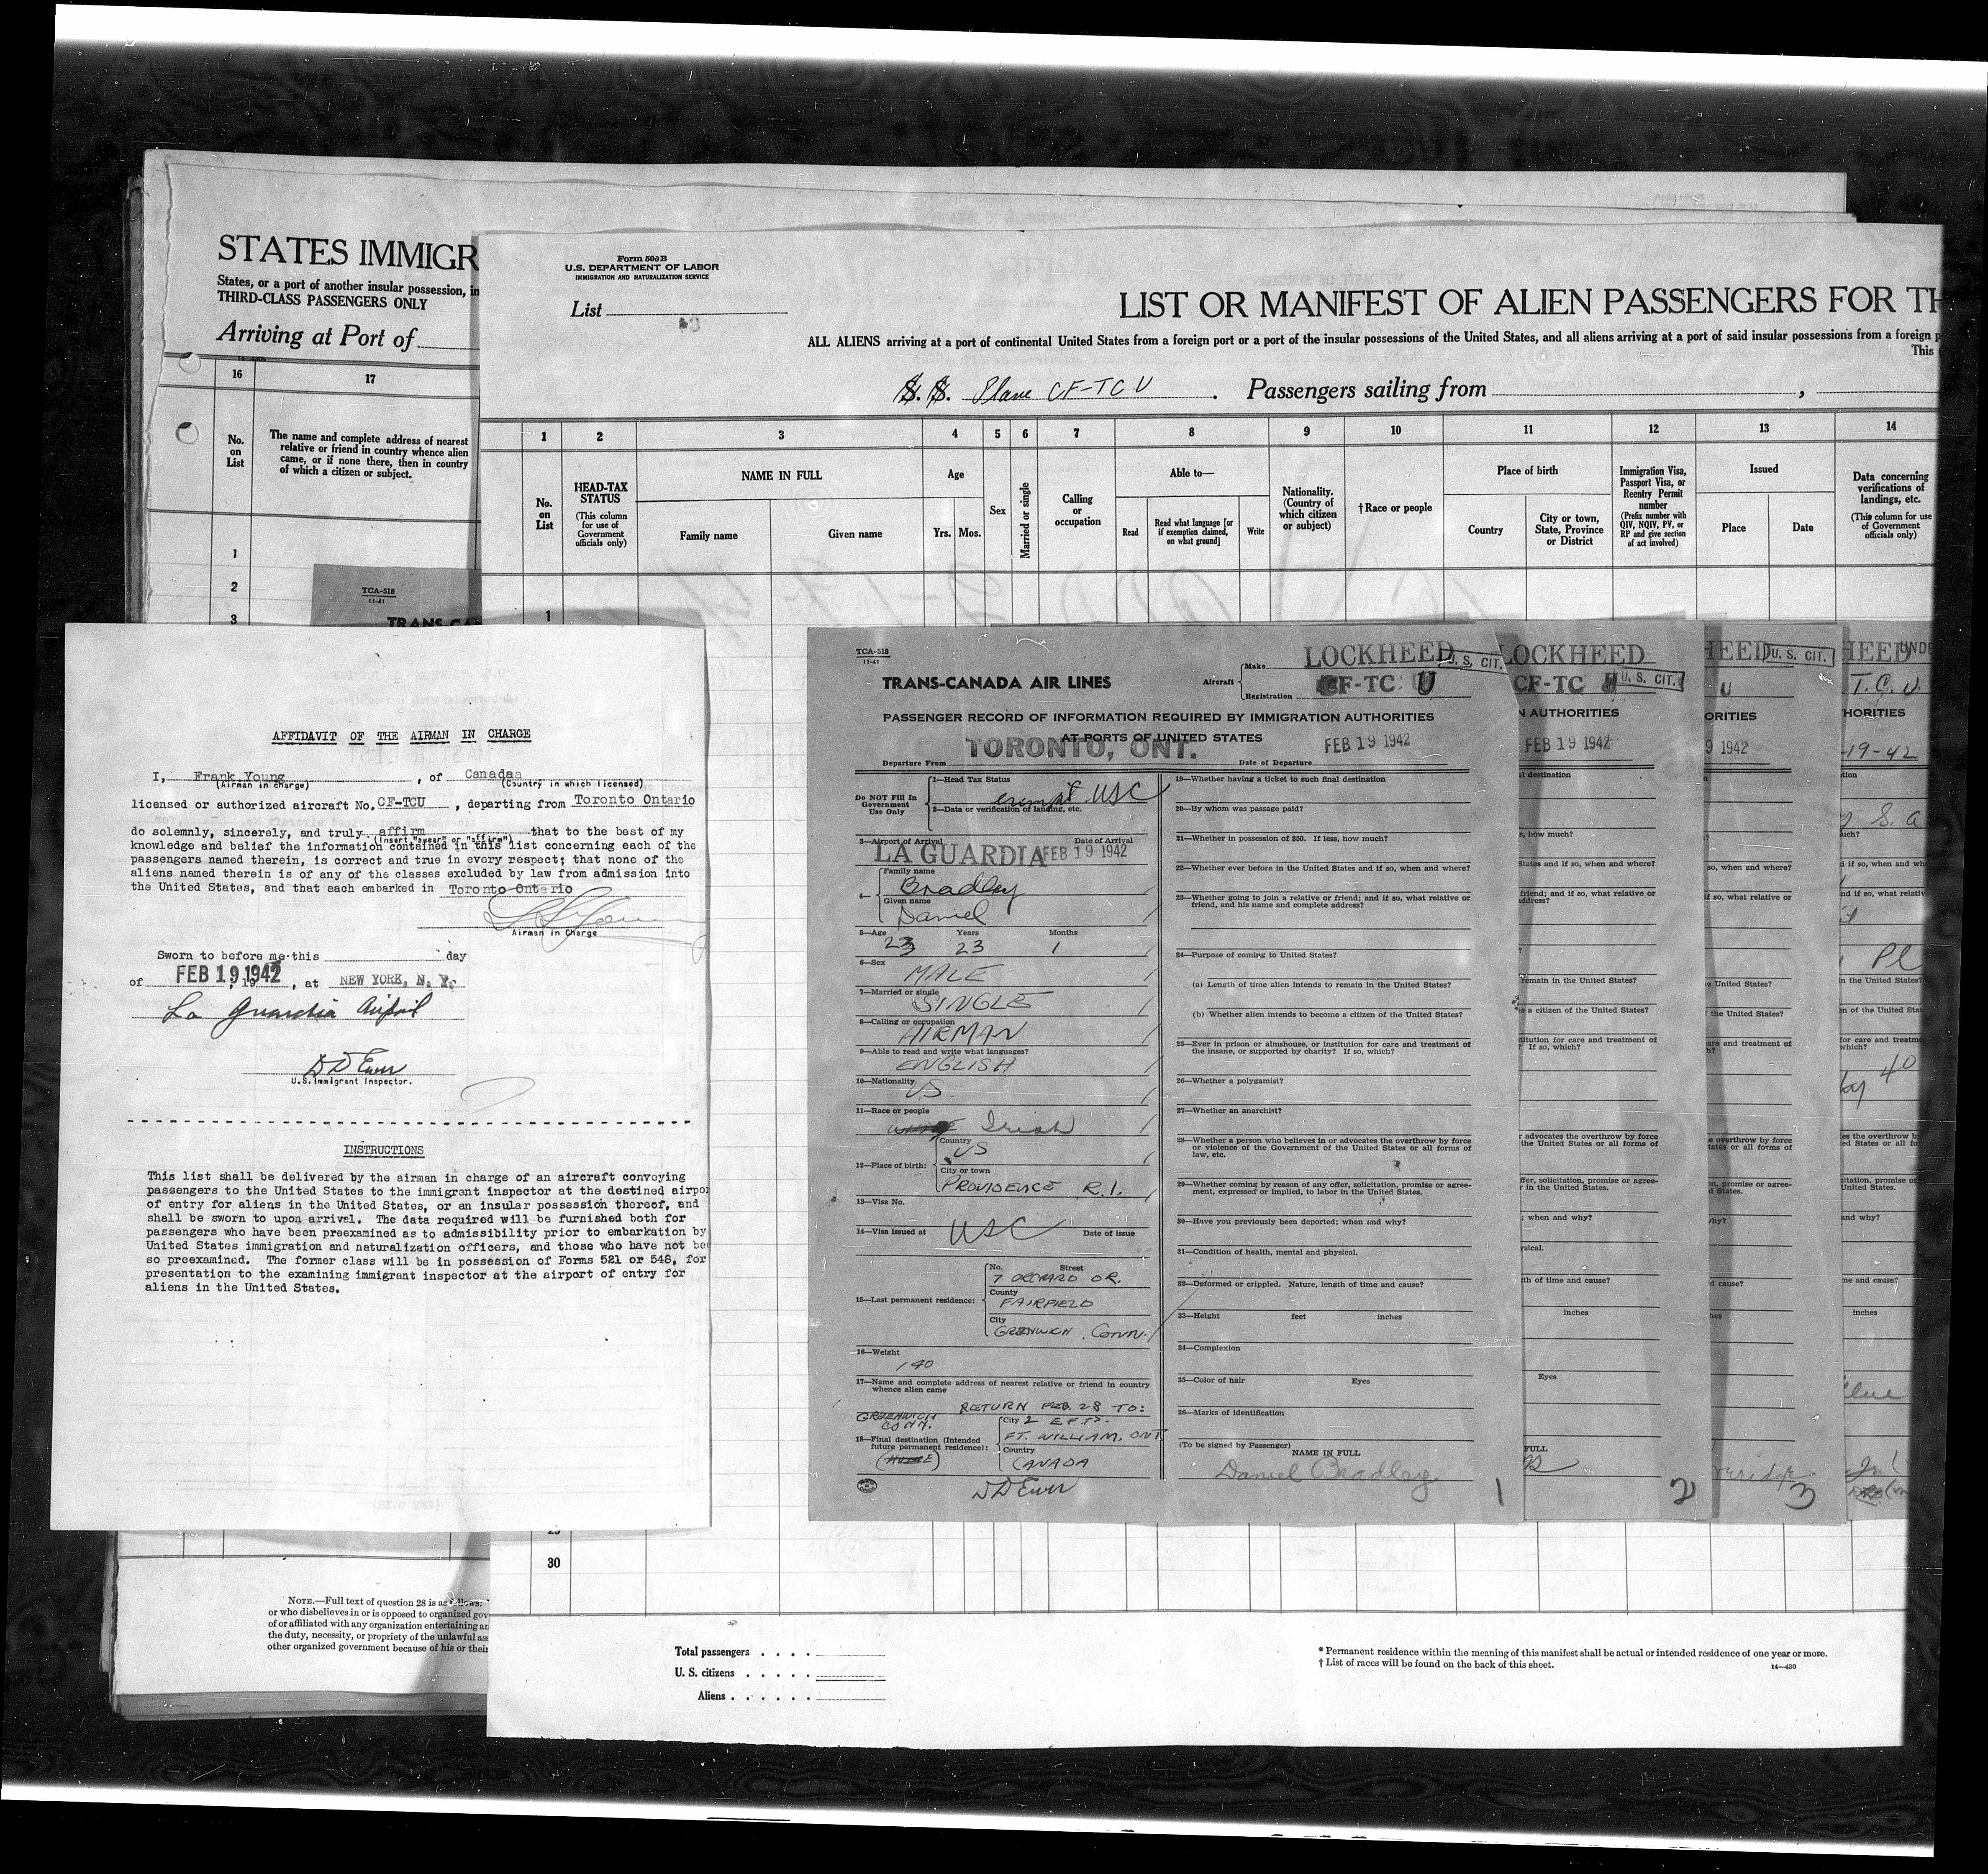 STATES IMMIGR
States, or a port of another insular possession, in
THIRD-CLASS PASSENGERS ONLY
Arriving at Port of
16
17
No. on List
The name and complete address of nearest
relative or friend in country whence alien
came, or if none there, then in country
of which a citizen or subject.
1
2
3
TCA-518
11-41
TRANS-CA
Form 500 B
U.S. DEPARTMENT OF LABOR
IMMIGRATION AND NATURALIZATION SERVICE
List
LIST OR MANIFEST OF ALIEN PASSENGERS FOR TH
ALL ALIENS arriving at a port of continental United States from a foreign port or a port of the insular possessions of the United States, and all aliens arriving at a port of said insular possessions from a foreign p
This
S. S. Plane CF-TCU . Passengers sailing from ,
1 2 3 4 5 6 7 8 9 10 11 12 13 14
No. on List
HEAD-TAX STATUS
(This column for use of Government officials only)
NAME IN FULL
Family name
Given name
Age
Yrs. Mos.
Sex
Married or single
Calling or occupation
Able to—
Read
Read what language [or if exemption claimed, on what ground]
Write
Nationality. (Country of which citizen or subject)
†Race or people
Place of birth
Country
City or town, State, Province or District
Immigration Visa, Passport Visa, or Reentry Permit number
(Prefix number with QIV, NQIV, PV, or RP and give section of act involved)
Issued
Place
Date
Data concerning verifications of landings, etc.
(This column for use of Government officials only)
1
AFFIDAVIT OF THE AIRMAN IN CHARGE
I, Frank Young , of Canadaa
(Airman in charge) (Country in which licensed)
licensed or authorized aircraft No. CF-TCU , departing from Toronto Ontario
do solemnly, sincerely, and truly affirm that to the best of my
(Insert "swear" or "affirm")
knowledge and belief the information contained in this list concerning each of the
passengers named therein, is correct and true in every respect; that none of the
aliens named therein is of any of the classes excluded by law from admission into
the United States, and that each embarked in Toronto Ontario
Airman in Charge
Sworn to before me this day
of FEB 19 1942 , 19 , at NEW YORK, N. Y.
La Guardia Airport
D D Ewer
U.S. Immigrant Inspector.
INSTRUCTIONS
This list shall be delivered by the airman in charge of an aircraft convoying
passengers to the United States to the immigrant inspector at the destined airpor
of entry for aliens in the United States, or an insular possession thereof, and
shall be sworn to upon arrival. The data required will be furnished both for
passengers who have been preexamined as to admissibility prior to embarkation by
United States immigration and naturalization officers, and those who have not be
so preexamined. The former class will be in possession of Forms 521 or 548, for
presentation to the examining immigrant inspector at the airport of entry for
aliens in the United States.
TCA-518
11-41
TRANS-CANADA AIR LINES
Aircraft
Make LOCKHEED
Registration CF-TC U
U. S. CIT.
PASSENGER RECORD OF INFORMATION REQUIRED BY IMMIGRATION AUTHORITIES
AT PORTS OF UNITED STATES
TORONTO, ONT.
FEB 19 1942
Departure From
Date of Departure
Do NOT Fill In Government Use Only
1—Head Tax Status
exempt USC
2—Data or verification of landing, etc.
3—Airport of Arrival
Date of Arrival
LA GUARDIA FEB 19 1942
4—
Family name
Bradley
Given name
Daniel
5—Age Years Months
23 23 1
6—Sex
MALE
7—Married or single
SINGLE
8—Calling or occupation
AIRMAN
9—Able to read and write what languages?
ENGLISH
10—Nationality
US
11—Race or people
Irish
12—Place of birth:
Country
US
City or town
PROVIDENCE R.I.
13—Visa No.
14—Visa issued at
USC
Date of issue
15—Last permanent residence:
No. Street
7 ORCHARD DR.
County
FAIRFIELD
City
GREENWICH, CONN.
16—Weight
140
17—Name and complete address of nearest relative or friend in country
whence alien came
RETURN FEB. 28 TO:
GREENWICH
CONN.
18—Final destination (Intended
future permanent residence):
City 2 E.F.T.S.
FT. WILLIAM, ONT
Country
CANADA
D D Ewer
19—Whether having a ticket to such final destination
20—By whom was passage paid?
21—Whether in possession of $50. If less, how much?
22—Whether ever before in the United States and if so, when and where?
23—Whether going to join a relative or friend; and if so, what relative or
friend, and his name and complete address?
24—Purpose of coming to United States?
(a) Length of time alien intends to remain in the United States?
(b) Whether alien intends to become a citizen of the United States?
25—Ever in prison or almshouse, or institution for care and treatment of
the insane, or supported by charity? If so, which?
26—Whether a polygamist?
27—Whether an anarchist?
28—Whether a person who believes in or advocates the overthrow by force
or violence of the Government of the United States or all forms of
law, etc.
29—Whether coming by reason of any offer, solicitation, promise or agree-
ment, expressed or implied, to labor in the United States.
30—Have you previously been deported; when and why?
31—Condition of health, mental and physical.
32—Deformed or crippled. Nature, length of time and cause?
33—Height feet inches
34—Complexion
35—Color of hair Eyes
36—Marks of identification
(To be signed by Passenger)
NAME IN FULL
Daniel Bradley
1
LOCKHEED
CF-TC
U. S. CIT.
N AUTHORITIES
FEB 19 1942
al destination
s, how much?
States and if so, when and where?
friend; and if so, what relative or
address?
remain in the United States?
e a citizen of the United States?
titution for care and treatment of
? If so, which?
r advocates the overthrow by force
the United States or all forms of
ffer, solicitation, promise or agree-
r in the United States.
; when and why?
ysical.
th of time and cause?
inches
Eyes
FULL
2
HEED
U. S. CIT.
U
ORITIES
9 1942
so, when and where?
if so, what relative or
United States?
the United States?
care and treatment of
e overthrow by force
tates or all forms of
n, promise or agree-
d States.
why?
d cause?
hes
3
HEED
UNDE
T. C. U.
HORITIES
-19-42
S. a
uch?
d if so, when and wh
nd if so, what relativ
Pl
in the United States?
n of the United Stat
for care and treatme
which?
40
es the overthrow b
ed States or all fo
citation, promise or
United States.
and why?
me and cause?
inches
30
NOTE.—Full text of question 28 is as follows:
or who disbelieves in or is opposed to organized gov
of or affiliated with any organization entertaining an
the duty, necessity, or propriety of the unlawful ass
other organized government because of his or their
Total passengers . . . .
U. S. citizens . . . . .
Aliens . . . . . .
* Permanent residence within the meaning of this manifest shall be actual or intended residence of one year or more.
† List of races will be found on the back of this sheet.
14—430